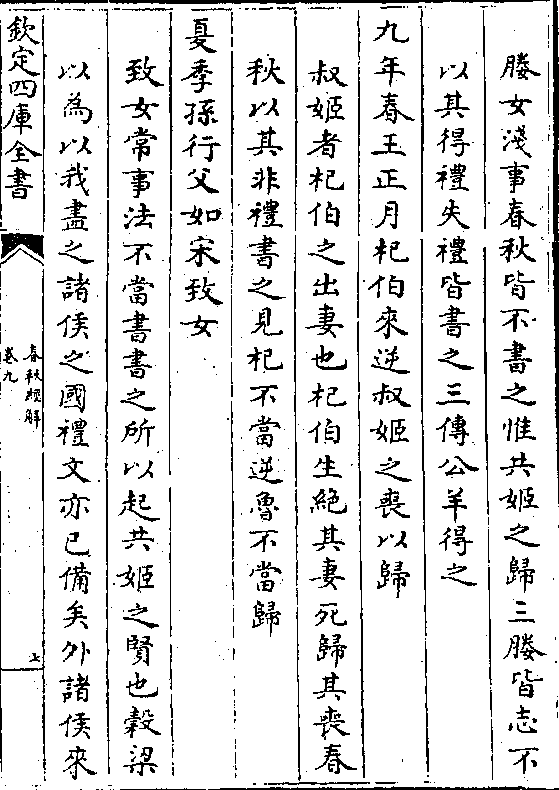 媵女淺事春秋皆不書之惟共姬之歸三媵皆志不
以其得禮失禮皆書之三傳公羊得之
九年春王正月杞伯來逆叔姬之喪以歸
叔姬者杞伯之出妻也杞伯生絶其妻死歸其喪春
秋以其非禮書之見杞不當逆魯不當歸
夏季孫行父如宋致女
致女常事法不當書書之所以起共姬之賢也穀梁
以為以我盡之諸侯之國禮文亦已備矣外諸侯來
欽定四庫全書
春秋經解
卷九
七